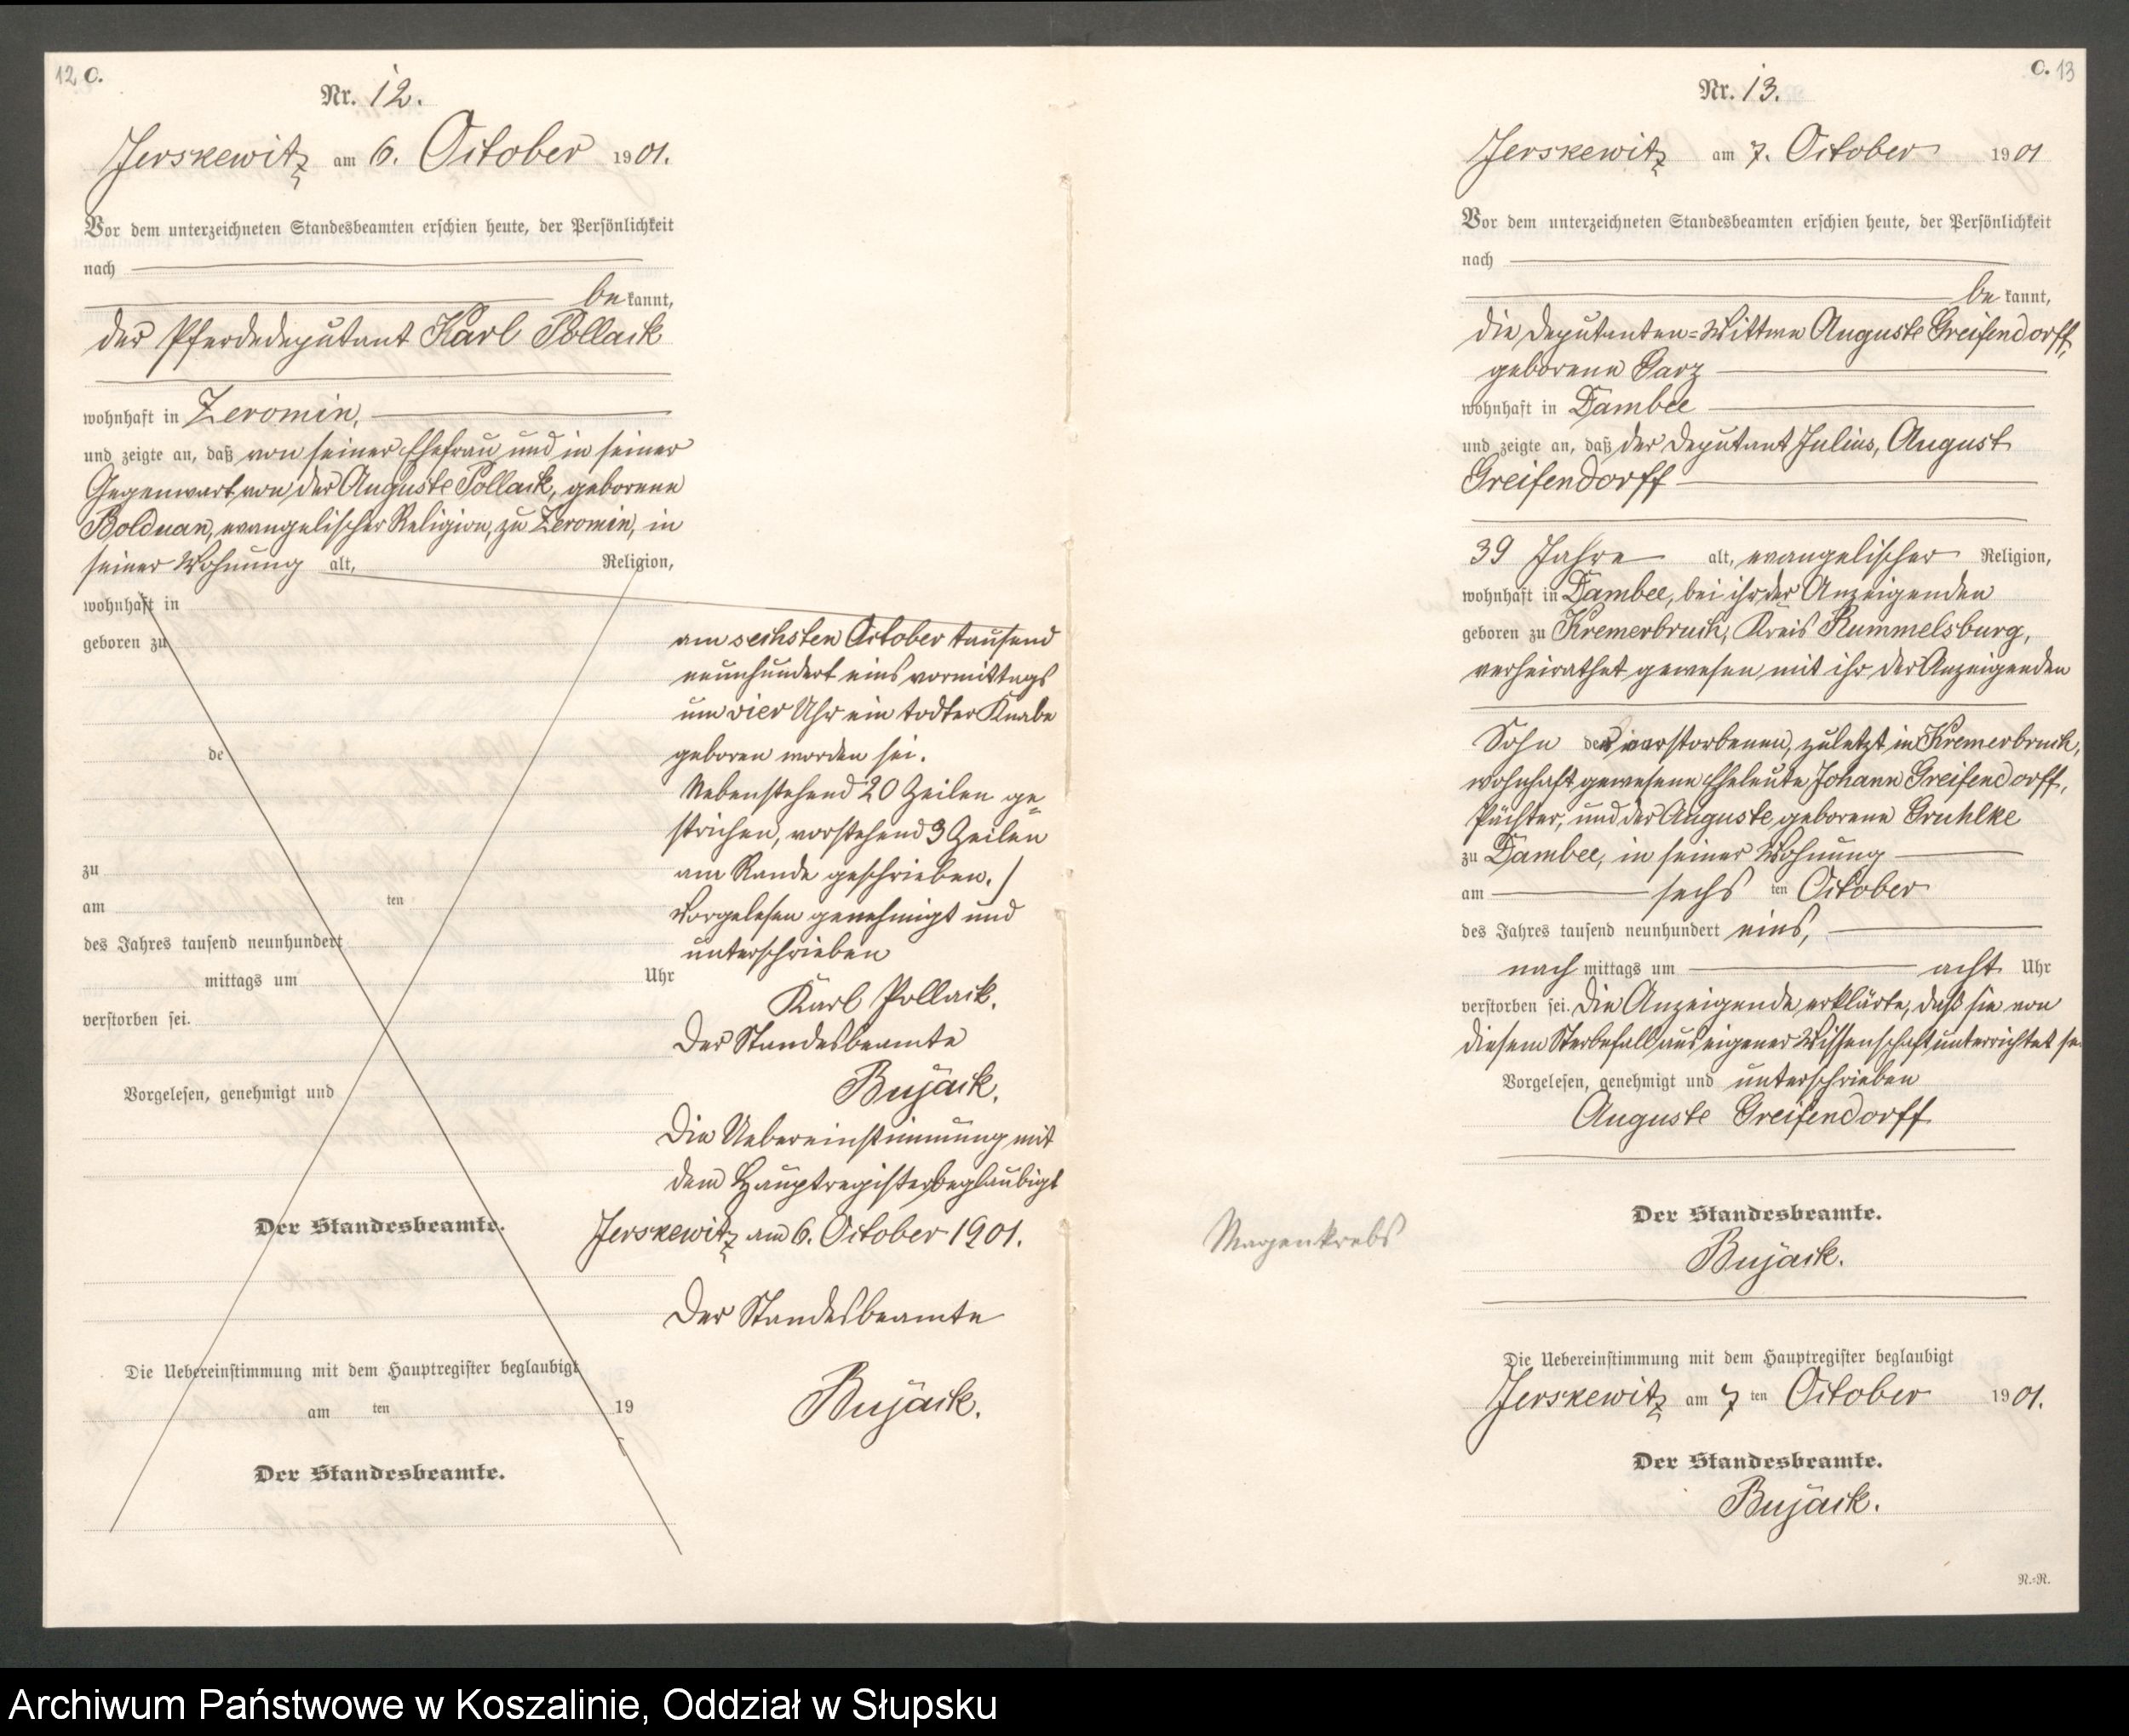 12 C.
Nr. 12.
Jerskewitz am 6. October 1901.
Vor dem unterzeichneten Standesbeamten erschien heute, der Persönlichkeit
nach
be kannt,
der Pferdedeputant Karl Pollack
wohnhaft in Zeromin,
und zeigte an, daß von seiner Ehefrau und in seiner
Gegenwart von der Auguste Pollack, geborene
Bolduan, evangelischer Religion, zu Zeromin, in
seiner Wohnung alt, Religion,
wohnhaft in
geboren zu
am sechsten October tausend
neunhundert eins vormittags
um vier Uhr ein todter Knabe
de
geboren worden sei.
Nebenstehend 20 Zeilen ge=
strichen, vorstehend 3 Zeilen
zu
am Rande geschrieben. /
am ten
Vorgelesen genehmigt und
des Jahres tausend neunhundert
unterschrieben
mittags um Uhr
Karl Pollack.
verstorben sei.
Der Standesbeamte
Vorgelesen, genehmigt und
Bujack.
Die Uebereinstimmung mit
dem Hauptregister beglaubigt
Der Standesbeamte.
Jerskewitz am 6. October 1901.
Der Standesbeamte
Die Uebereinstimmung mit dem Hauptregister beglaubigt
am ten 19
Bujack.
Der Standesbeamte.
C. 13
Nr. 13.
Jerskewitz am 7. October 1901
Vor dem unterzeichneten Standesbeamten erschien heute, der Persönlichkeit
nach
be kannt,
die Deputanten=Wittwe Auguste Greifendorff,
geborene Garz
wohnhaft in Dambee
und zeigte an, daß der Deputant Julius, August
Greifendorff
39 Jahre alt, evangelischer Religion,
wohnhaft in Dambee, bei ihr der Anzeigenden
geboren zu Kremerbruch, Kreis Rummelsburg,
verheirathet gewesen mit ihr der Anzeigenden
Sohn der verstorbenen, zuletzt in Kremerbruch,
wohnhaft gewesene Eheleute Johann Greifendorff,
Pächter, und der Auguste geborene Gruhlke
zu Dambee, in seiner Wohnung
am sechs ten October
des Jahres tausend neunhundert eins,
nach mittags um acht Uhr
verstorben sei. Die Anzeigende erklärte, daß sie von
diesem Sterbefall aus eigener Wissenschaft unterrichtet se
Vorgelesen, genehmigt und unterschrieben
Auguste Greifendorff
Der Standesbeamte.
Magenkrebs
Bujack.
Die Uebereinstimmung mit dem Hauptregister beglaubigt
Jerskewitz am 7 ten October 1901.
Der Standesbeamte.
Bujack.
N.=R.
Archiwum Państwowe w Koszalinie, Oddział w Słupsku